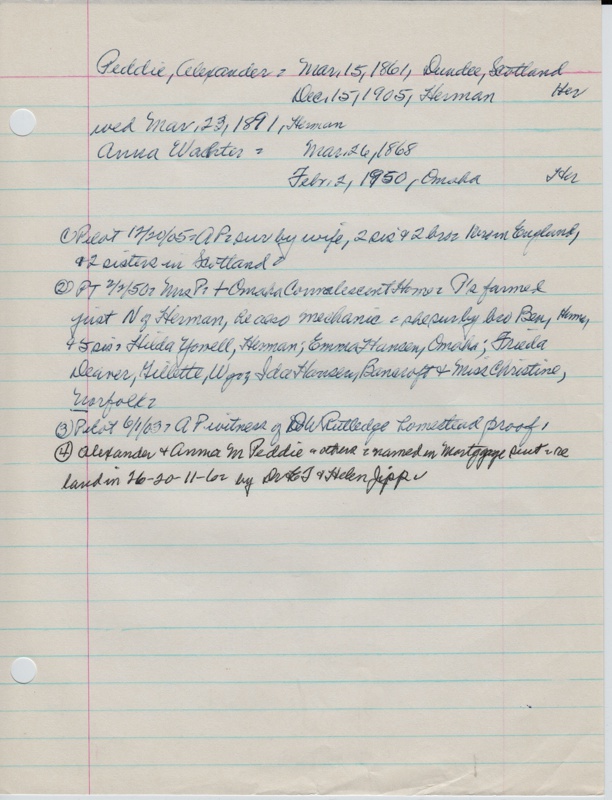 Peddie, Alexander = Mar. 15, 1861, Dundee, Scotland
Dec. 15, 1905, Herman Her
wed Mar. 23, 1891, Herman
Anna Wachter = Mar. 26, 1868
Febr. 2, 1950, Omaha Her
① Pilot 12/20/05 = A P = sur by wife, 2 sis & 2 bros in England,
& 2 sisters in Scotland =
② PT 2/2/50 = Mrs P = + Omaha Convalescent Home = P's farmed
just N of Herman, he also mechanic = she sur by bro Ben, Herman,
& 5 sis = Hilda Yowell, Herman; Emma Hansen, Omaha; Frieda
Deaver, Gillette, Wyo; Ida Hansen, Bancroft & Miss Christine,
Norfolk =
③ Pilot 6/1/03 = A P witness of DW Rutledge homestead proof,
④ Alexander & Anna M Peddie & others = named in Mortgage suit = re
land in 26-20-11-6 = by Dr E J & Helen Jipp